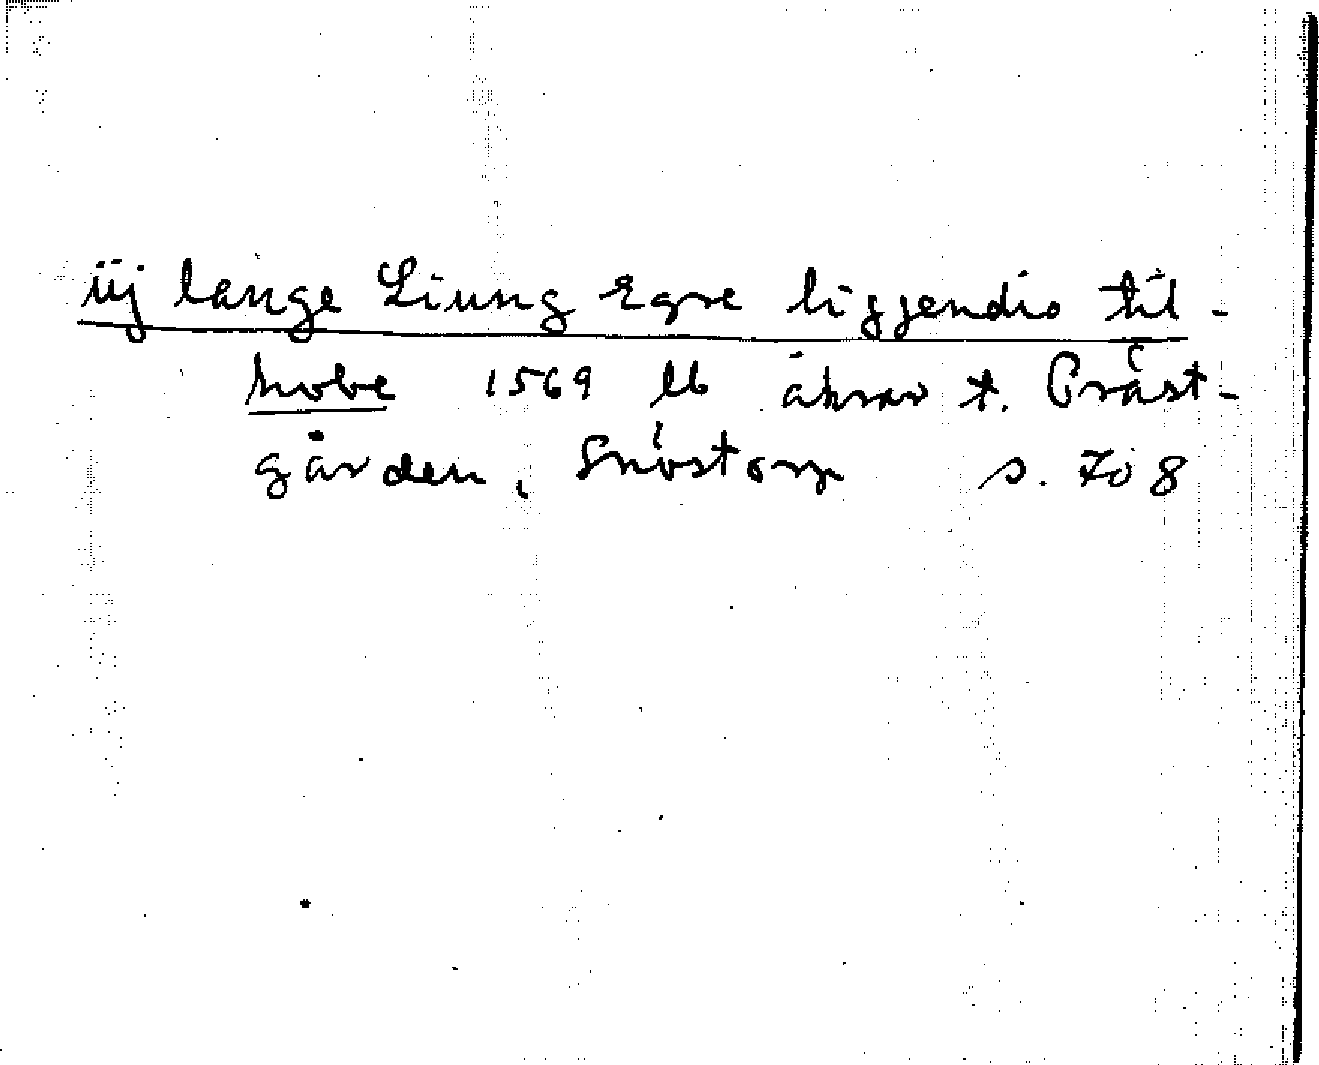 iij lange Liung Egre liggendis til-
hobe 1569 Lb åkrar t. Präst-
gården, Snöstorp s. 708